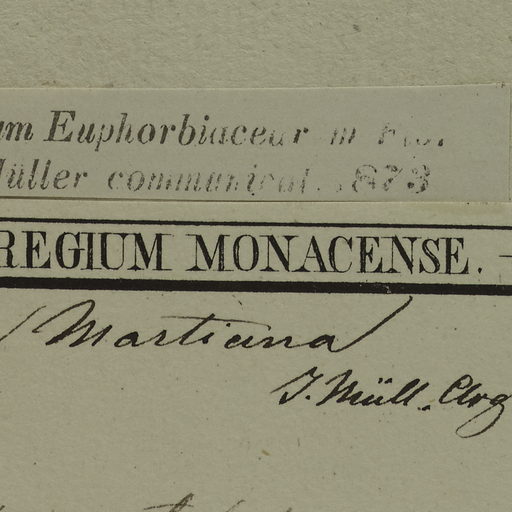 um Euphorbiacear m
Müller communicat. 1873
REGIUM MONACENSE.
Martiana
J. Müll. Arg